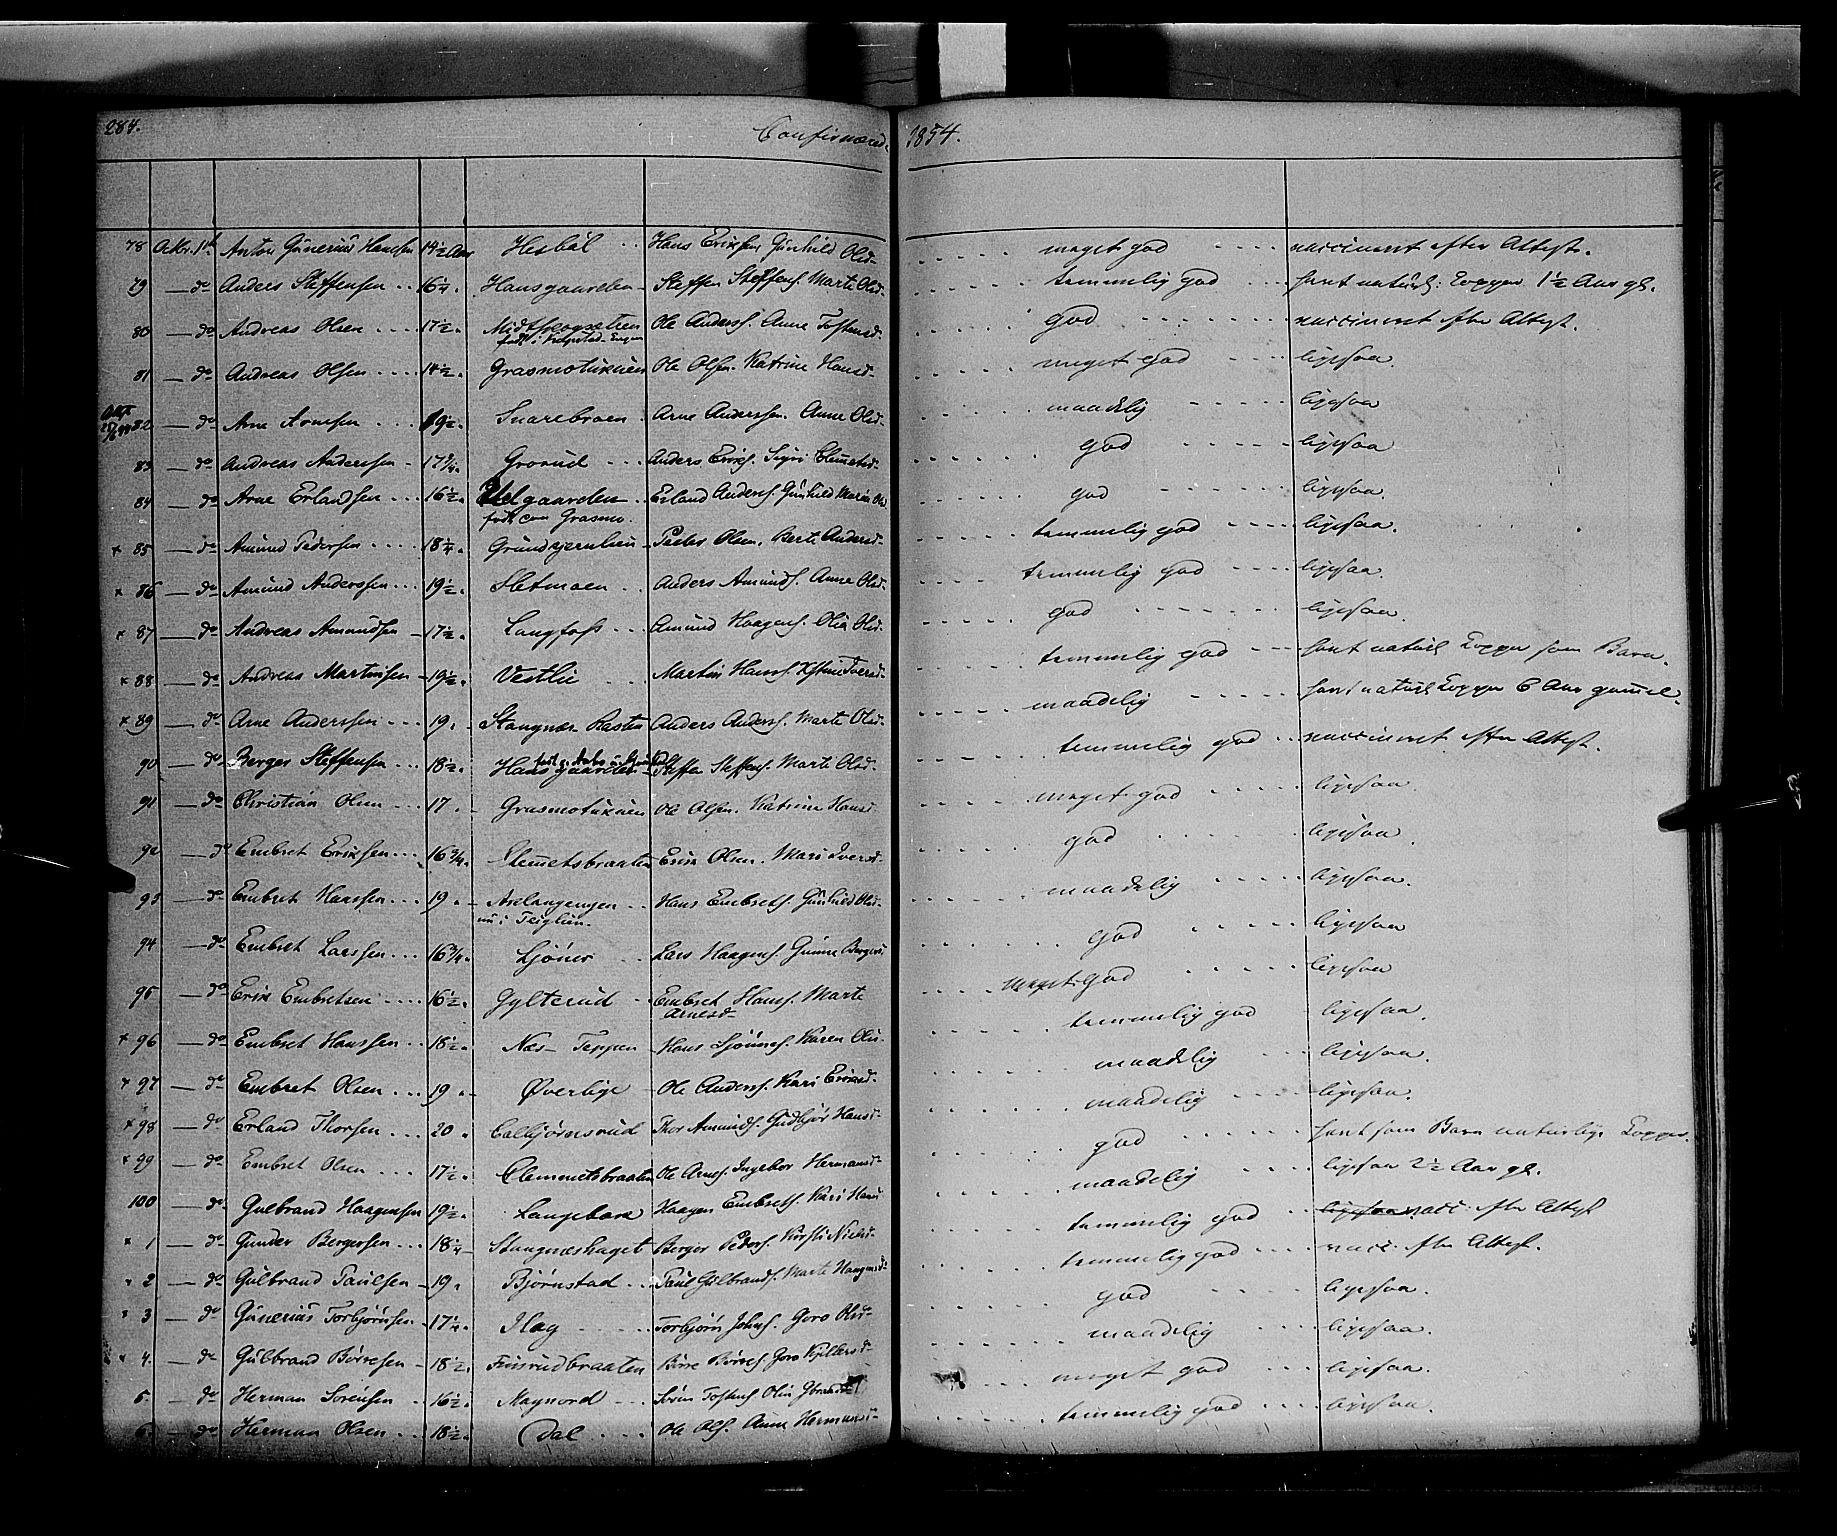 284. Confirmered. 1854.
78 Octbr. 1ste Anton Günerius Hansen 14½ Aar Hesböl Hans Eriksen Günhild Olsd. meget god vaccineret efter Attest.
79 — do Anders Steffensen 16¼ Hansgaarden Steffen Steffens. Marte Olsd. temmelig god havt natürl: Kopper 1½ Aar gl.
80 — do Andreas Olsen 17½ Ole Anders. Anne Tostensd. god vaccineret efter Attest.
født i
81 — do Andreas Olsen 14½ Grasmotükuen Ole Olsen. Katrine Hansd. meget god ligesaa
82 — do Arne Arnesen 19½ Snarebroen Arne Anderssen. Anne Olsd. maadelig ligesaa
83 — do Andreas Anderssen 17¾ Grorüd Anders Eriks. Sigri Clemetsd. god ligesaa
84 — do Arne Erlandsen 16½ Erland Anders. Günhild Marie god ligesaa.
født paa Grasmo.
× 85 — do Amünd Pedersen 18¼ Peder Olsen. Berte Andersd. temmelig god ligesaa.
× 86 — do Amünd Anderssen 19½ Sletmoen Anders Amünds. Anne Olsd. temmelig god ligesaa.
× 87 — do Andreas Amundsen 17½ Langfoss Amünd Haagens. Olia Olsd. god ligesaa.
× 88 — do Andreas Martinsen 19½ Vestlie Martin Hans. Iversd. temmelig god havt natürl Kopper som Barn.
× 89 — do Arne Anderssen 19 Stangnæs Anders Anders. Marte Olsd. maadelig havt natürl Kopper 6 Aar gammel.
90 — do Berger Steffensen 18½ Hansgaarden Steffen Steffens. Marte Olsd. temmelig god vaccineret efter Attest.
91 — do Christian Olsen 17 Grasmotükuen Ole Olsen. Katrine Hansd meget god ligesaa.
92 — do Embret Eriksen 16¾ Clemetsbraaten Erik Olsen. Mari Iversd. god ligesaa.
93 — do Embret Hanssen 19 Axelangengen Hans Embrets. Günhild Olsd. maadelig ligesaa.
nu i Teiglien.
94 — do Embret Larssen 16¾ Ljöner Lars Haagens. Günne god ligesaa
95 — do Erik Embretsen 16½ Gylterüd Embret Hans. Marte Arnesd. meget god ligesaa
× 96 — do Embret Hanssen 18½ Næs-Teppen Hans Karen temmelig god ligesaa.
× 97 — do Embret Olsen 19 Øverlige Ole Anders. Kari Eriksd. maadelig ligesaa.
× 98 — do Erland Thorsen 20 Colbjørnsrüd Thor Amünds. Gudbjør Hansd. maadelig ligesaa.
× 99 — do Embret Olsen 17½ Clemmetsbraaten Ole Arnes. Ingebor Hermansd. god havt som Barn naturlige Kopper.
100 do Gulbrand Haagensen 19½ Langebak Haagen Embrets. Kari Hansd maadelig ligesaa 2½ Aar gl.
× 1 — do Gunder Bergersen 18¼ Stangnæshaget Berger Peders. Kirsti Nielsd temmelig god ligesaa vacc: efter Attest
2 — do Gülbrand Paulsen 19 Bjørnstad Paul Gülbrands. Marte Haagensd. temmelig god vacc. efter Attest.
3 do Günerius Torbjørnsen 17¼ Hag Torbjørn Johns. Goro Olsd. god ligesaa.
4. — do Gülbrand Börresen 18½ Börre Börres. Goro Kjeldersd. maadelig ligesaa.
5. — do Herman Sørensen 16½ Magnord Sören Tostens. Olia Gbrandsd meget god ligesaa.
6. — do Herman Olsen 18½ Dal Ole Ols. Anne Hermansd. temmelig god ligesaa.